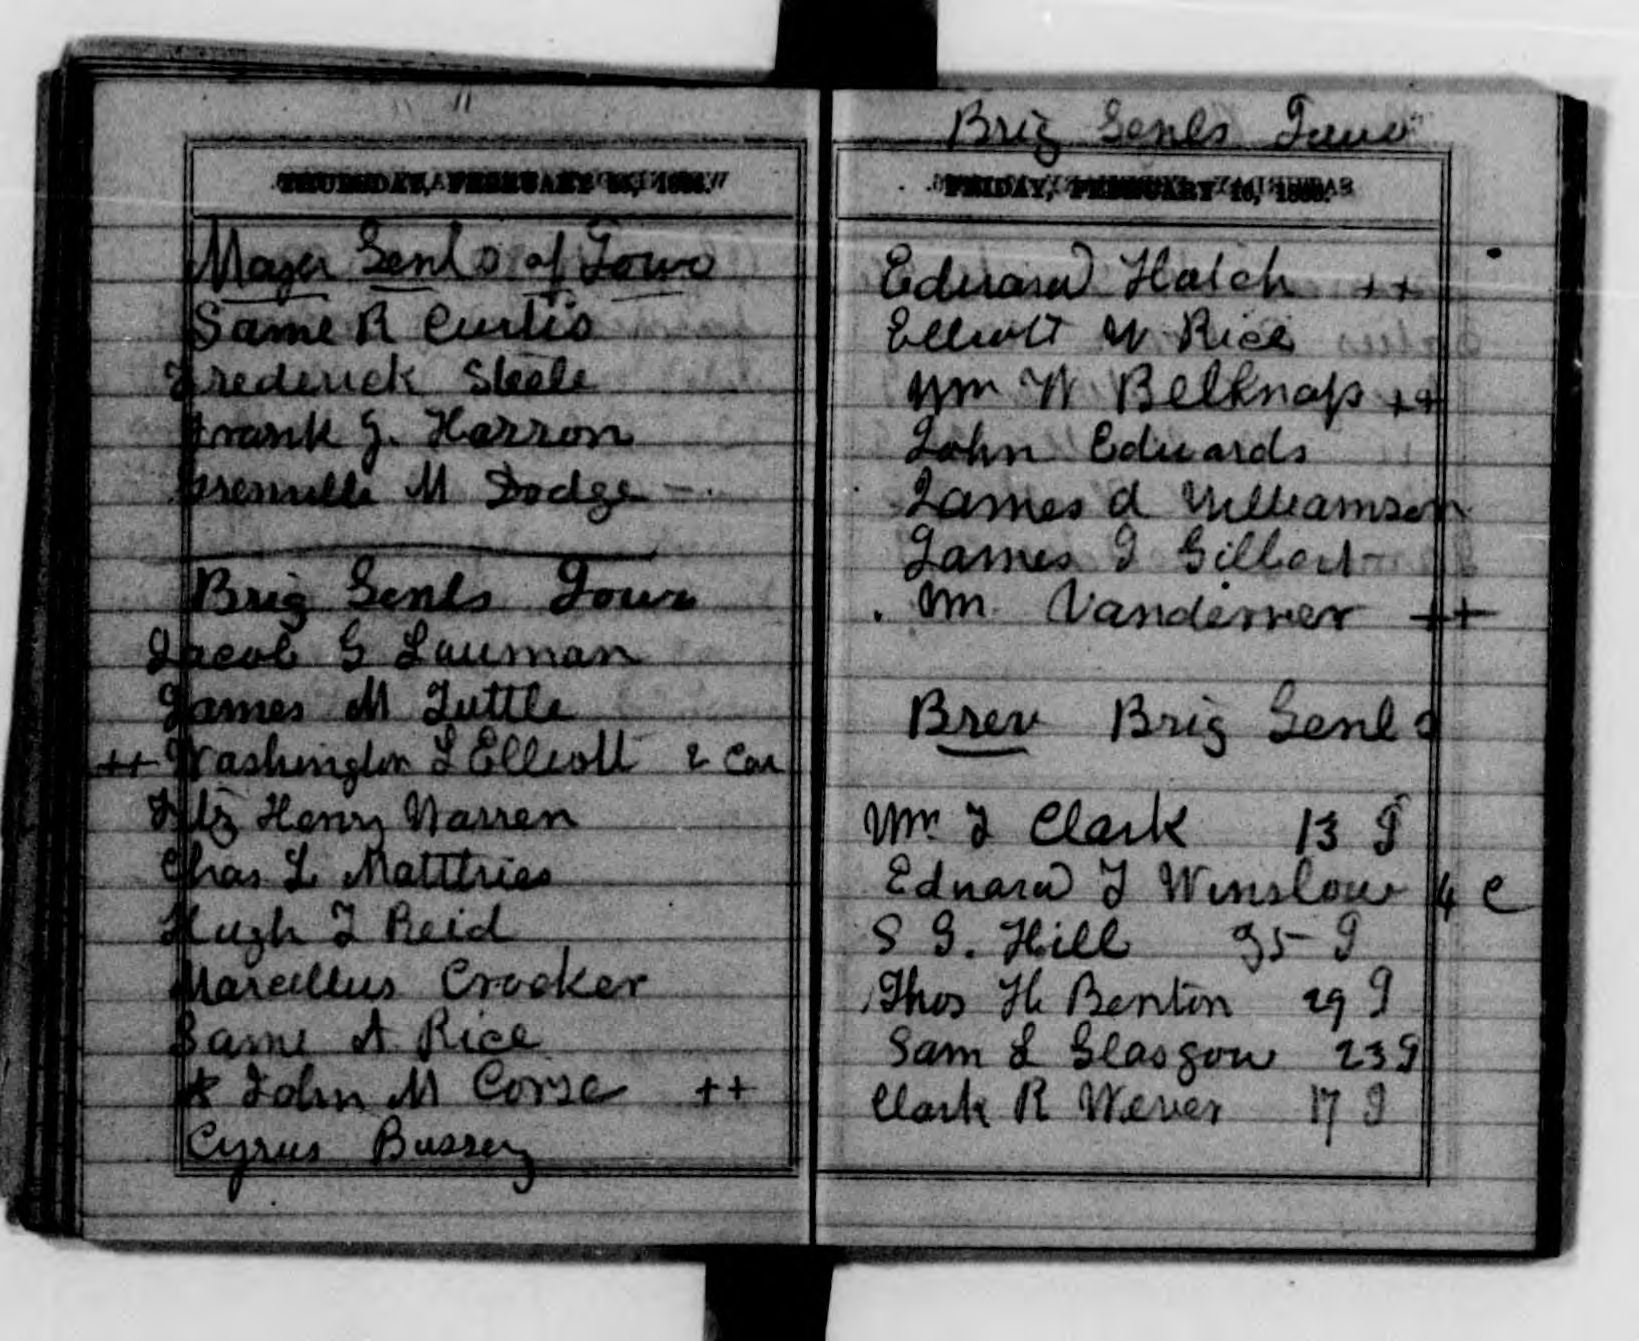 THURSDAY, FEBRUARY
Major Genls of Iowa
Saml R Curtis
Frederick Steele
Frank J. Harron
Grenville M Dodge -
Brig Genls Iowa
Jacob G Lauman
James M Tuttle
++ Washington L Elliott 2 Cav
Fitz Henry Warren
Chas L Matthies
Hugh T Reid
Marcellus Crocker
Saml A Rice
* John M Corse ++
Cyrus Bussey
Brig Genls Iowa
FRIDAY, FEBRUARY
Edward Hatch ++
Elliott W Rice
Wm W Belknap ++
John Edwards
James A Williamson
James I Gilbert
Wm Vanderver ++
Brev Brig Genls
Wm T Clark 13 I
Edward F Winslow 4 C
S G. Hill 35 I
Thos H Benton 29 I
Sam L Glasgow 23 I
Clark R Wever 17 I